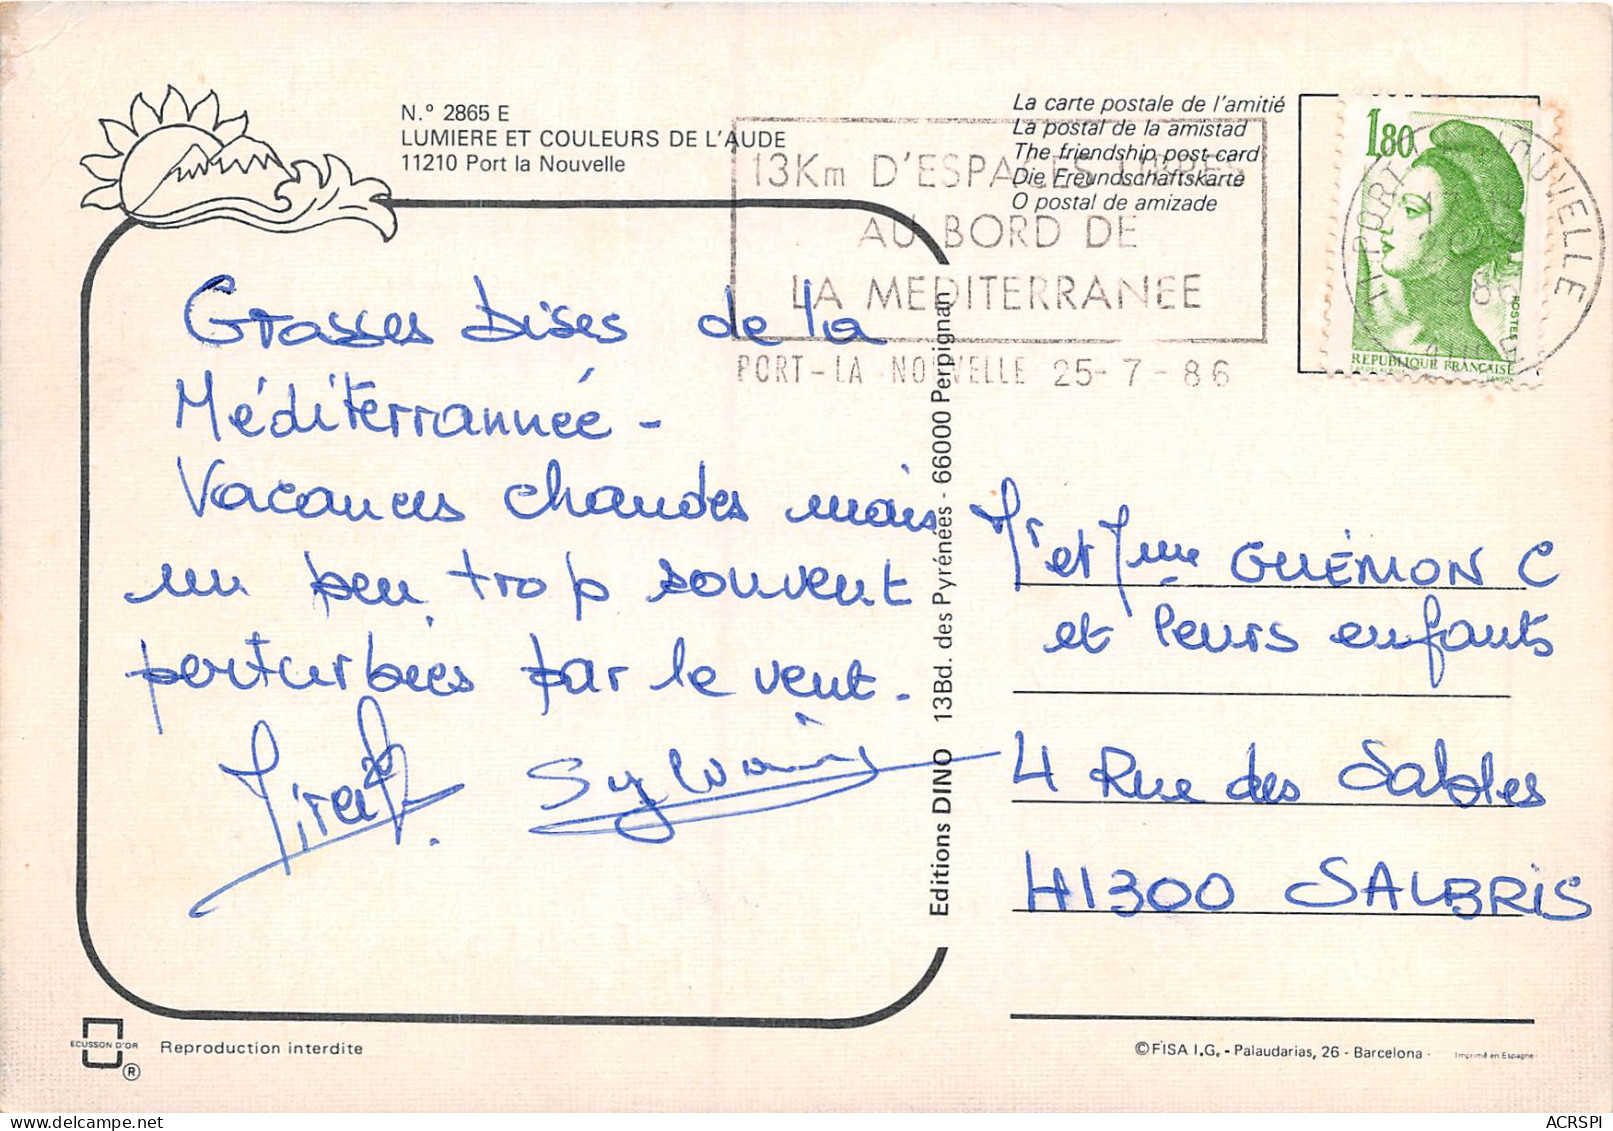 N.° 2865 E
LUMIERE ET COULEURS DE L'AUDE
11210 Port la Nouvelle
La carte postale de l'amitié
La postal de la amistad
The friendship post card
Die Freundschaftskarte
O postal de amizade
13Km D'ESPACES LIBRES
AU BORD DE
LA MEDITERRANEE
PORT-LA NOUVELLE 25-7-86
1,80
POSTES
REPUBLIQUE FRANÇAISE
11 PORT LA NOUVELLE
AUDE
Grosses bises de la
Méditerrannée -
Vacances chaudes mais
un peu trop souvent
perturbées par le vent.
Sylvain
Editions DINO 13Bd. des Pyrénées - 66000 Perpignan
Mr et Mme GUÉMON C
et leurs enfants
4 Rue des Sables
41300 SALBRIS
ECUSSON D'OR
®
Reproduction interdite
©FISA I.G. - Palaudarias, 26 - Barcelona -
Imprimé en Espagne
ACRSPI